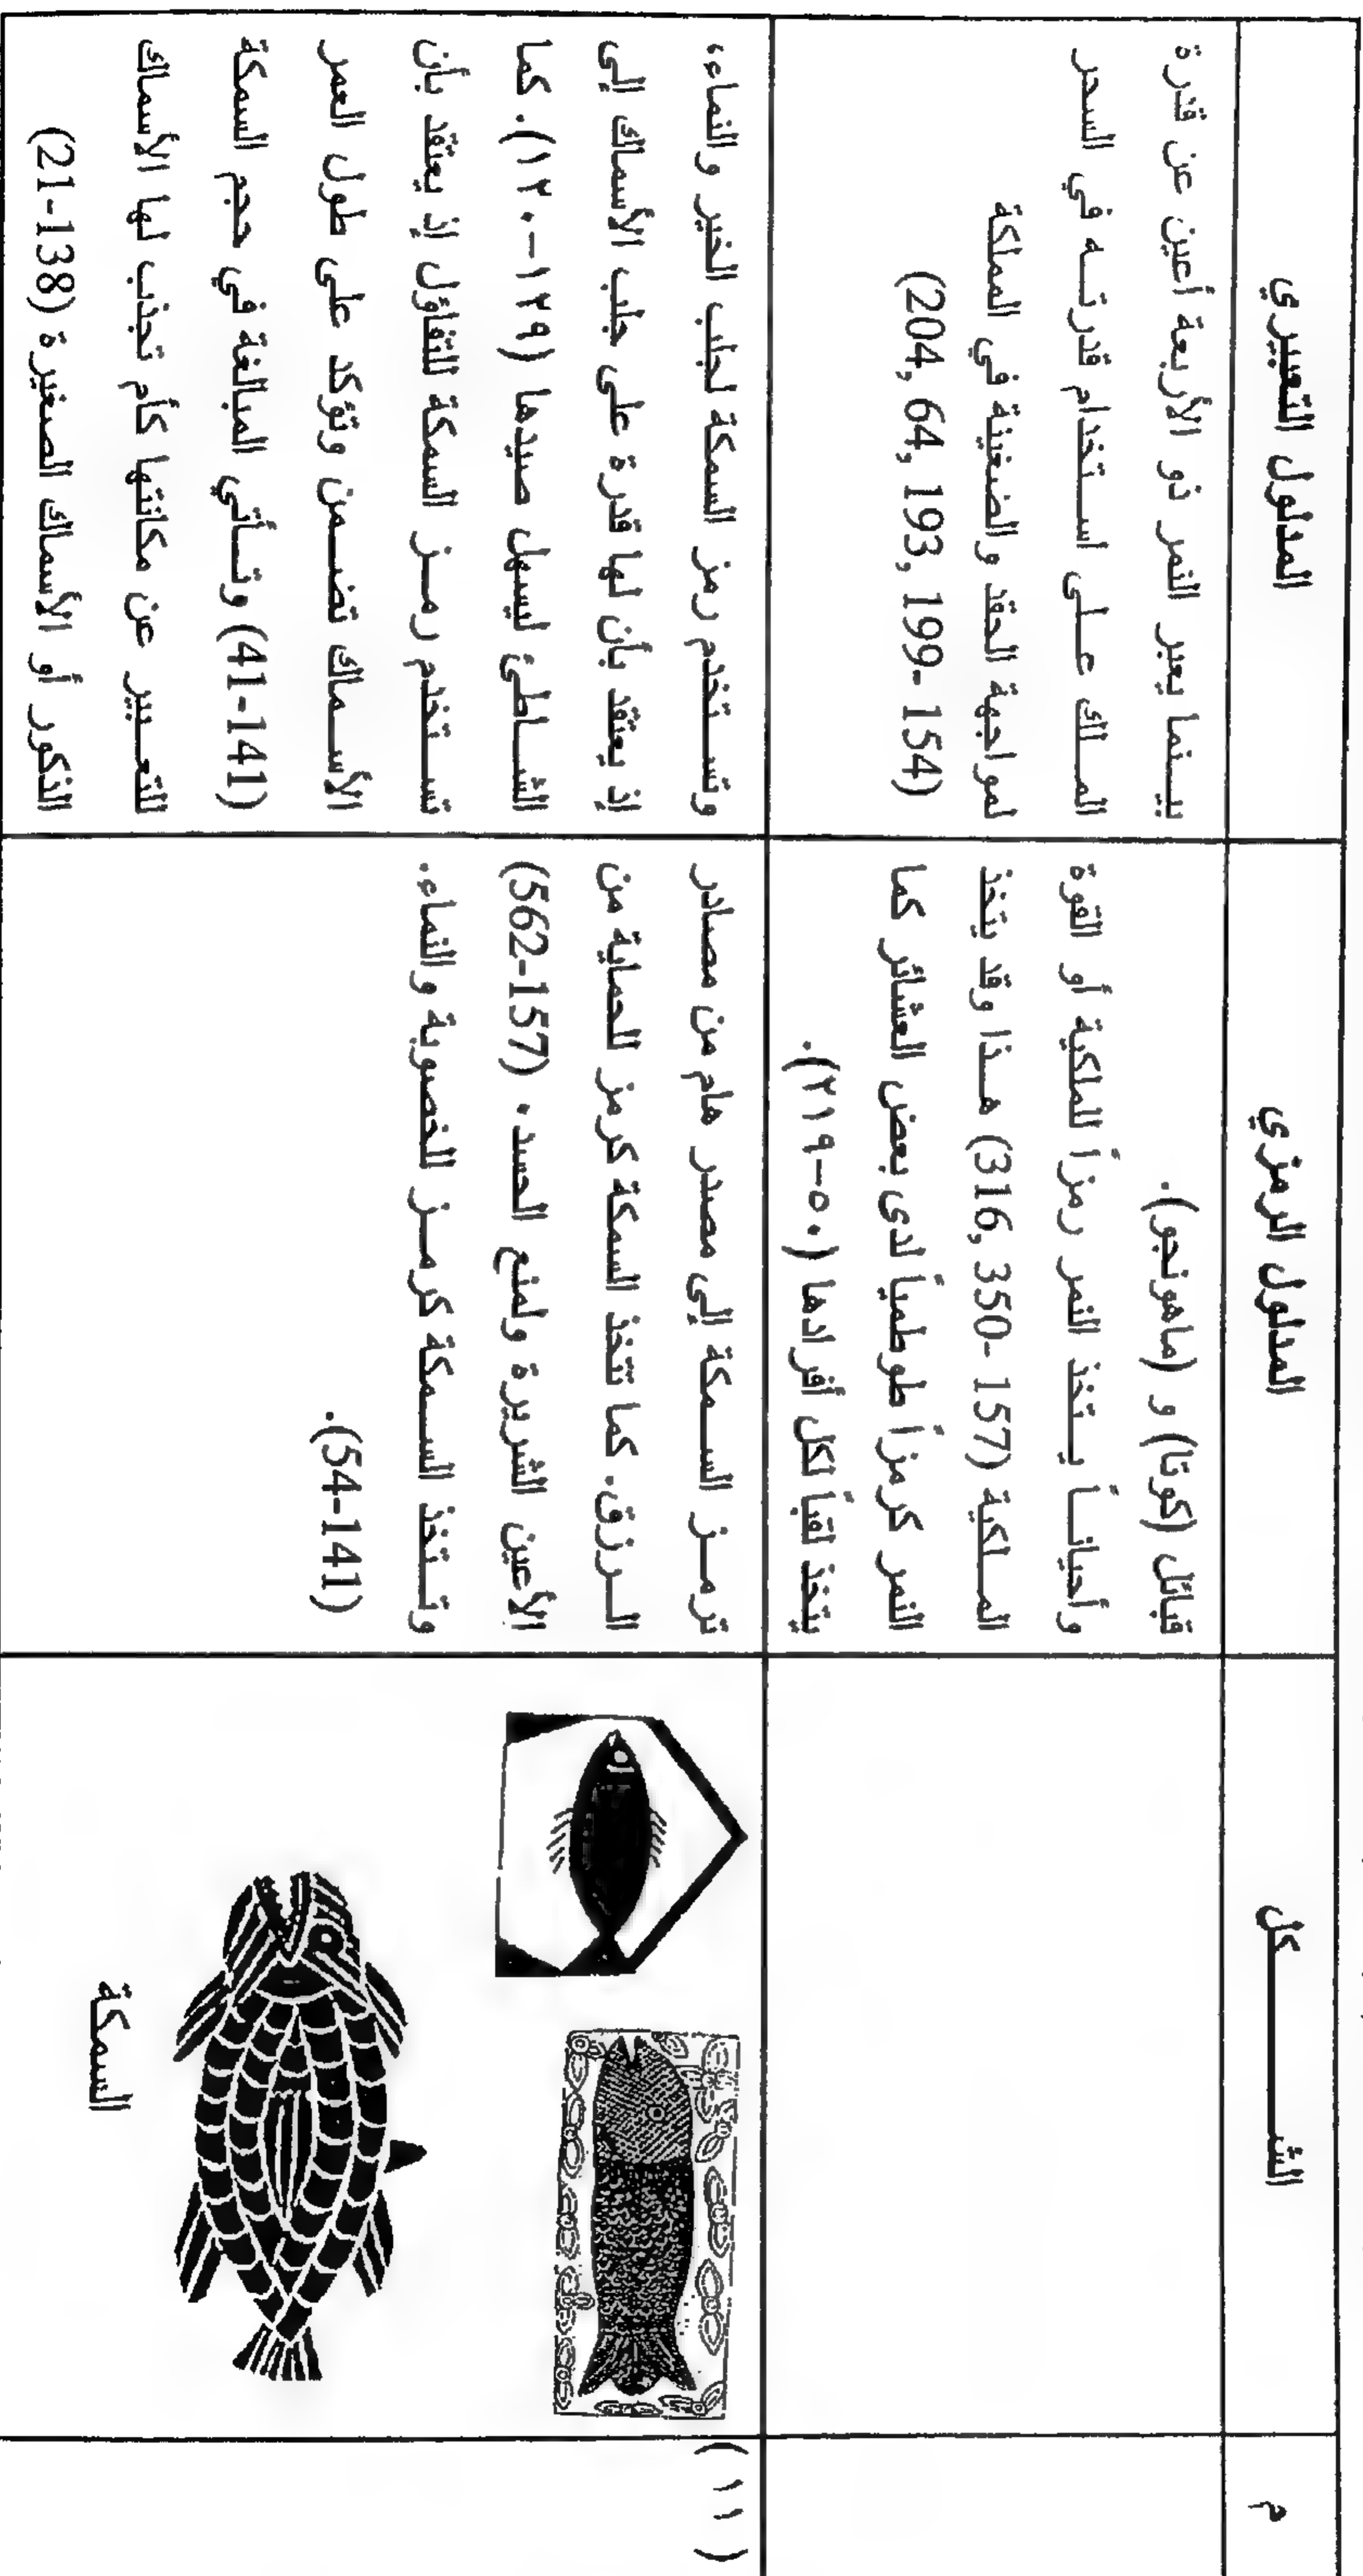 م
الشـــــكل
المدلول الرمزي
المدلول التعبيري
قبائل (كوتا) و (ماهونجو).
وأحيانـــاً يـــتخذ النمر رمزاً للملكية أو القوة
المـــلكية (157 -350 ,316) هـــذا وقد يتخذ
النمر كرمزاً طوطمياً لدى بعض العشائر كما
يتخذ لقباً لكل أفرادها (٥٠-٢١٩).
بيـــنما يعبر النمر ذو الأربعة أعين عن قدرة
المـــلك عـــلى اســـتخدام قدرتـــه في السحر
لمواجهة الحقد والضغينة في المملكة
(204, 64, 193, 199- 154)
(١١)
السمكة
ترمـــز الســـمكة إلى مصدر هام من مصادر
الـــرزق. كما تتخذ السمكة كرمز للحماية من
الأعين الشريرة ولمنع الحسد. (157-562)
وتـــتخذ الســـمكة كرمـــز للخصوبة والنماء.
(54-141).
وتســـتخدم رمز السمكة لجلب الخير والنماء،
إذ يعتقد بأن لها قدرة على جلب الأسماك إلى
الشـــاطئ ليسهل صيدها (١٢٩-١٢٠). كما
تســـتخدم رمـــز السمكة للتفاؤل إذ يعتقد بأن
الأســـماك تضـــمن وتؤكد على طول العمر
(41-141) وتـــأتي المبالغة في حجم السمكة
للتعـــبير عن مكانتها كأم تجذب لها الأسماك
الذكور أو الأسماك الصغيرة (138-21)